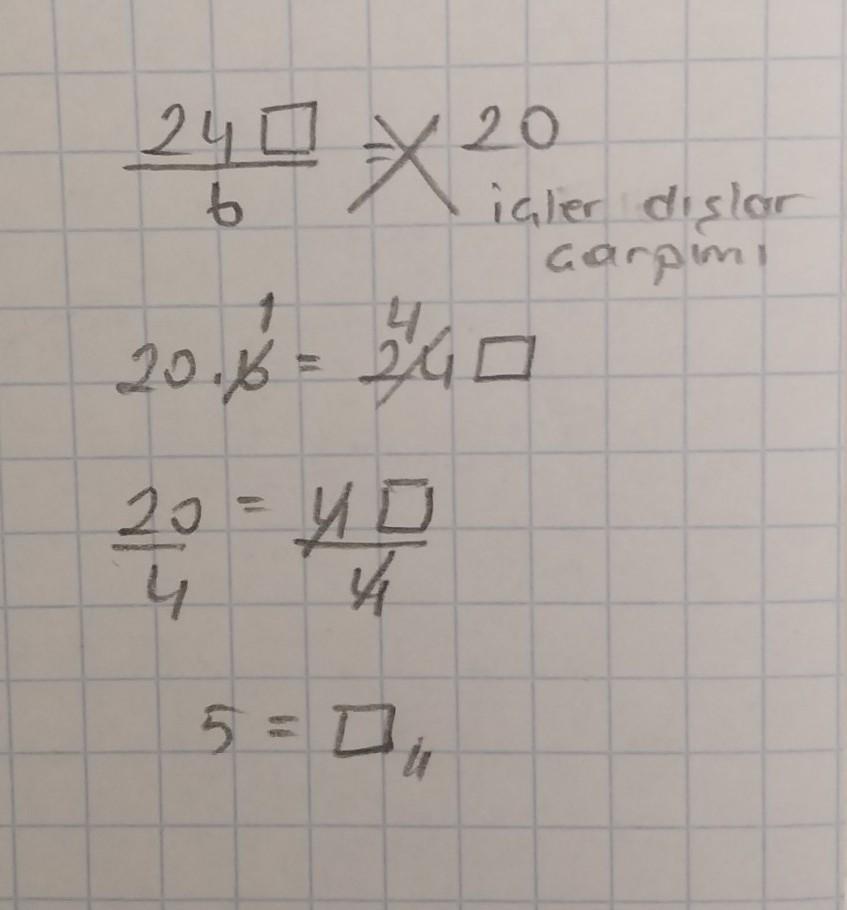 24 □ = 20
6
içler dışlar
çarpımı
20.6 = 24 □
1 4
20 = 4 □
4 4
5 = □ "